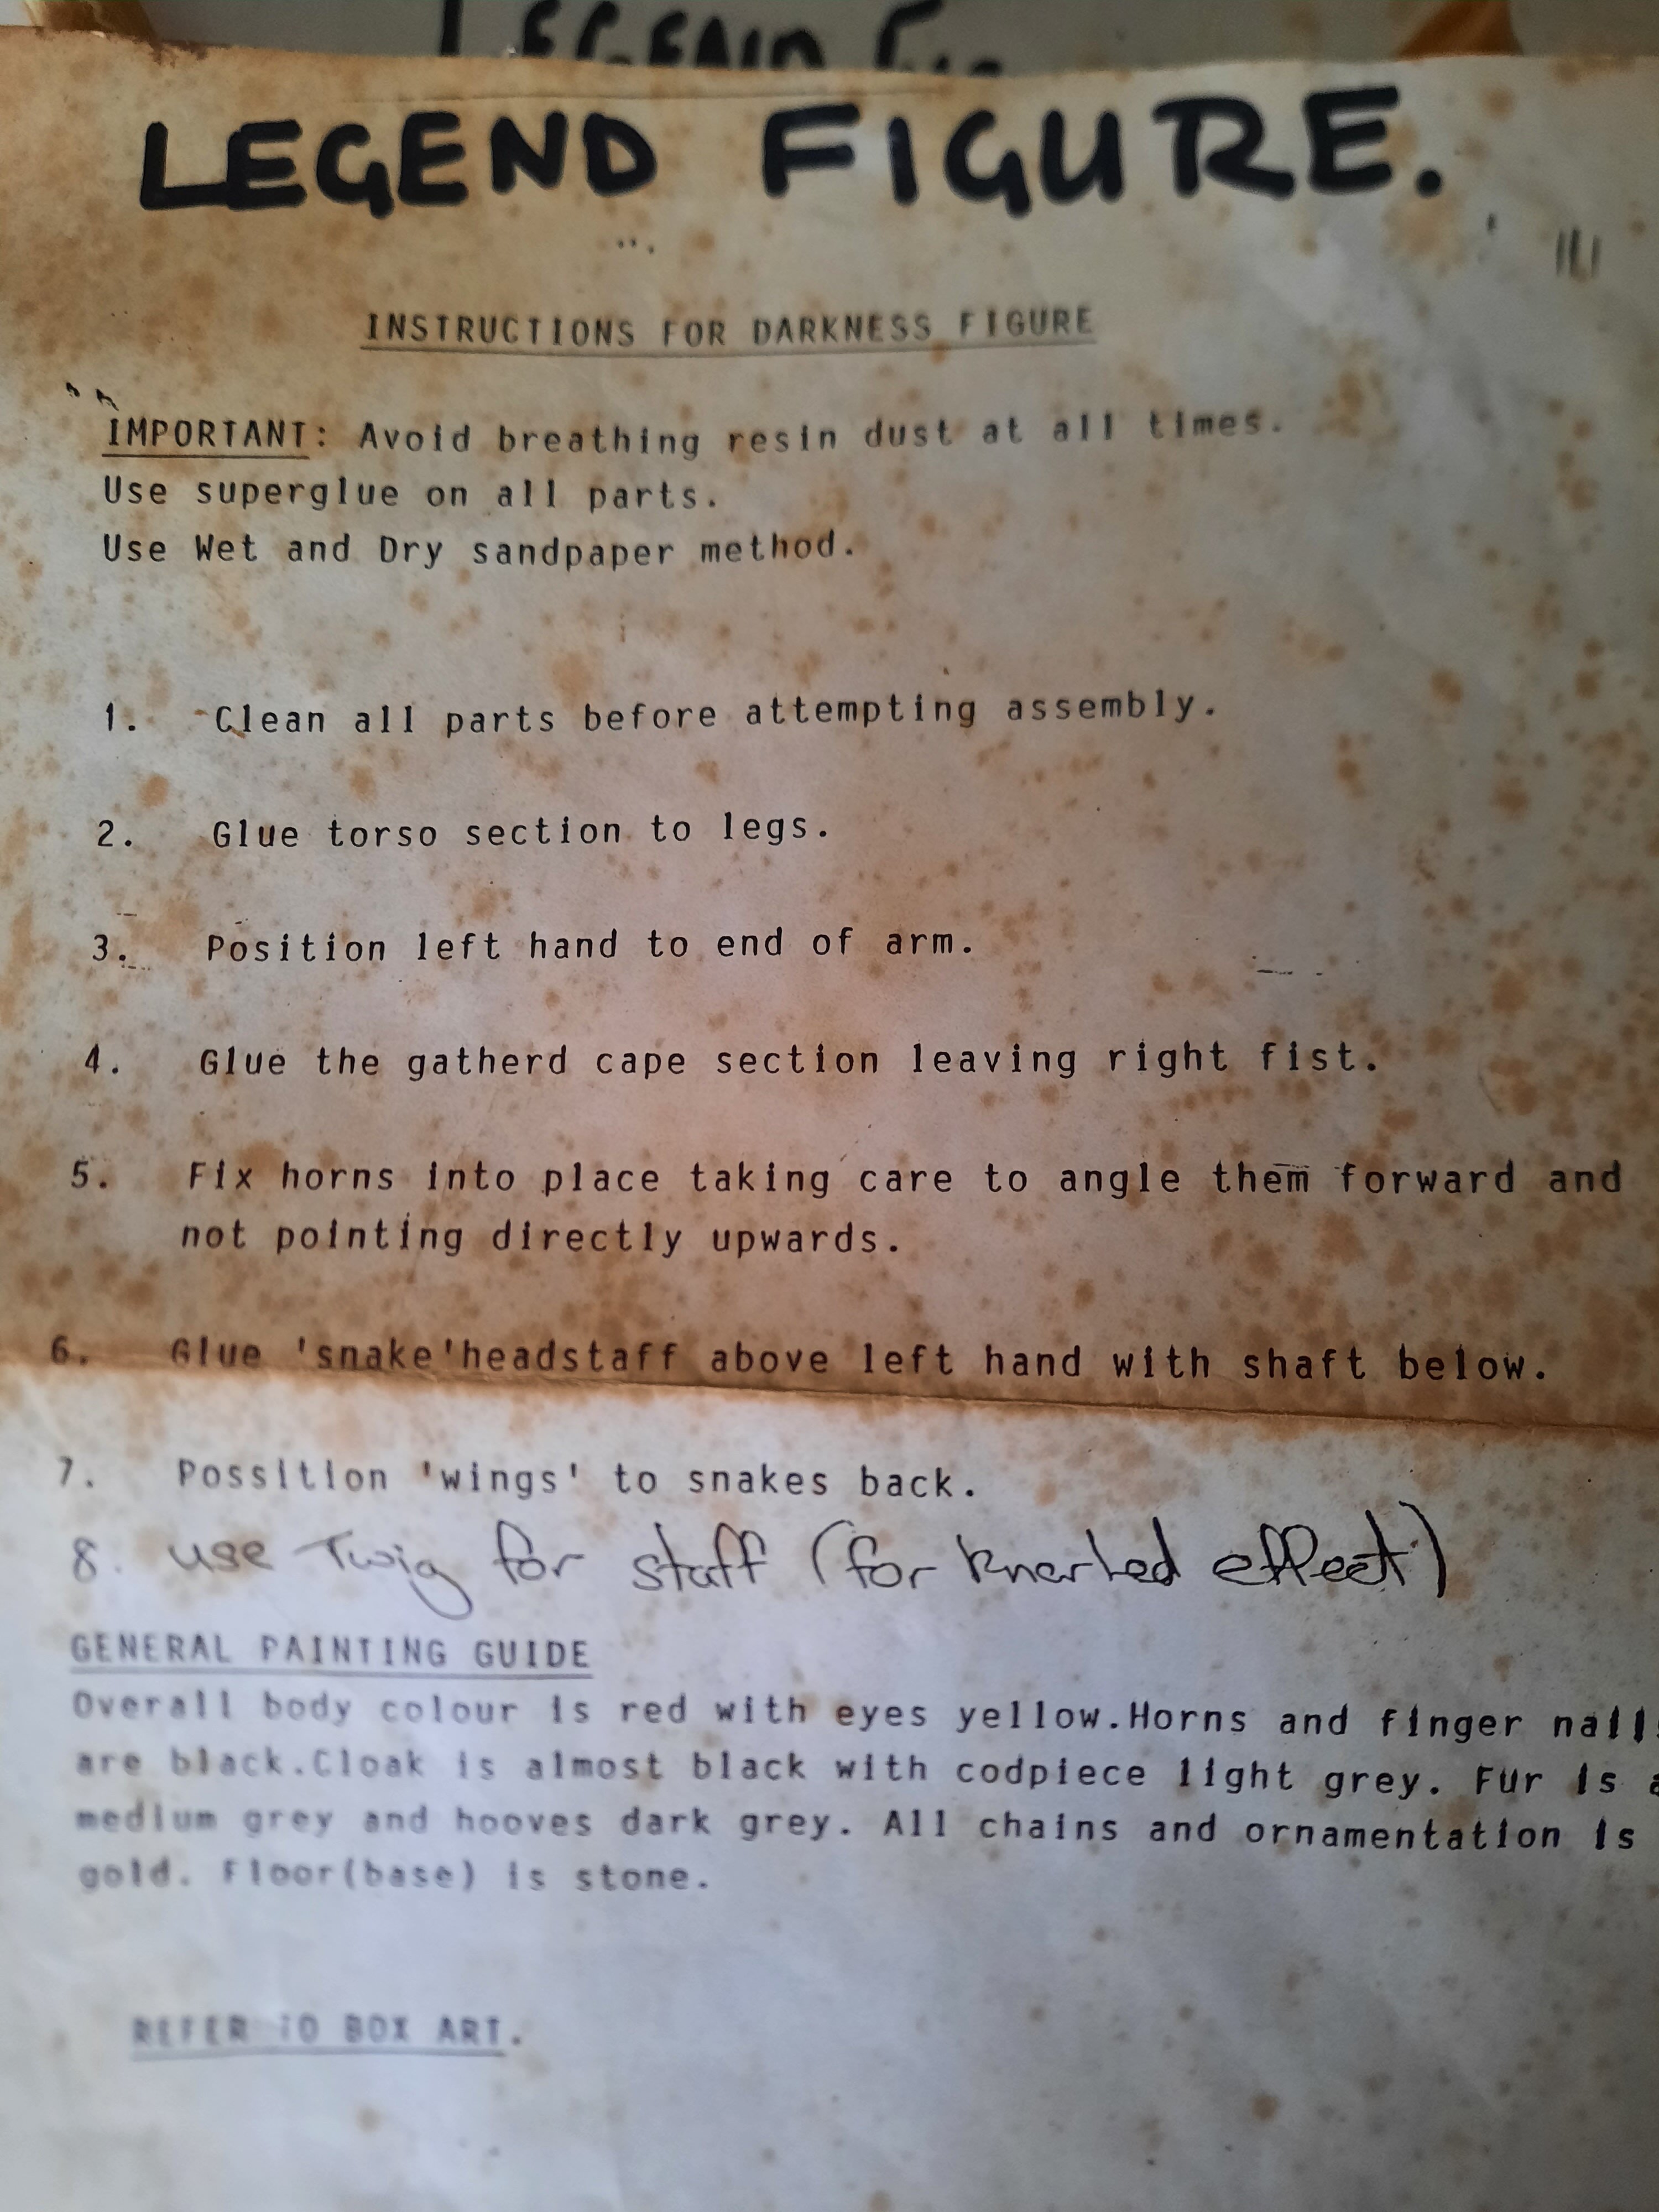 LEGEND FIG
LEGEND FIGURE.
INSTRUCTIONS FOR DARKNESS FIGURE
IMPORTANT: Avoid breathing resin dust at all times.
Use superglue on all parts.
Use Wet and Dry sandpaper method.
1. Clean all parts before attempting assembly.
2. Glue torso section to legs.
3. Position left hand to end of arm.
4. Glue the gatherd cape section leaving right fist.
5. Fix horns into place taking care to angle them forward and
not pointing directly upwards.
6. Glue 'snake'headstaff above left hand with shaft below.
7. Possition 'wings' to snakes back.
8. use Twig for staff (for knarled effect)
GENERAL PAINTING GUIDE
Overall body colour is red with eyes yellow.Horns and finger nails
are black.Cloak is almost black with codpiece light grey. Fur is a
medium grey and hooves dark grey. All chains and ornamentation is
gold. Floor(base) is stone.
REFER TO BOX ART.